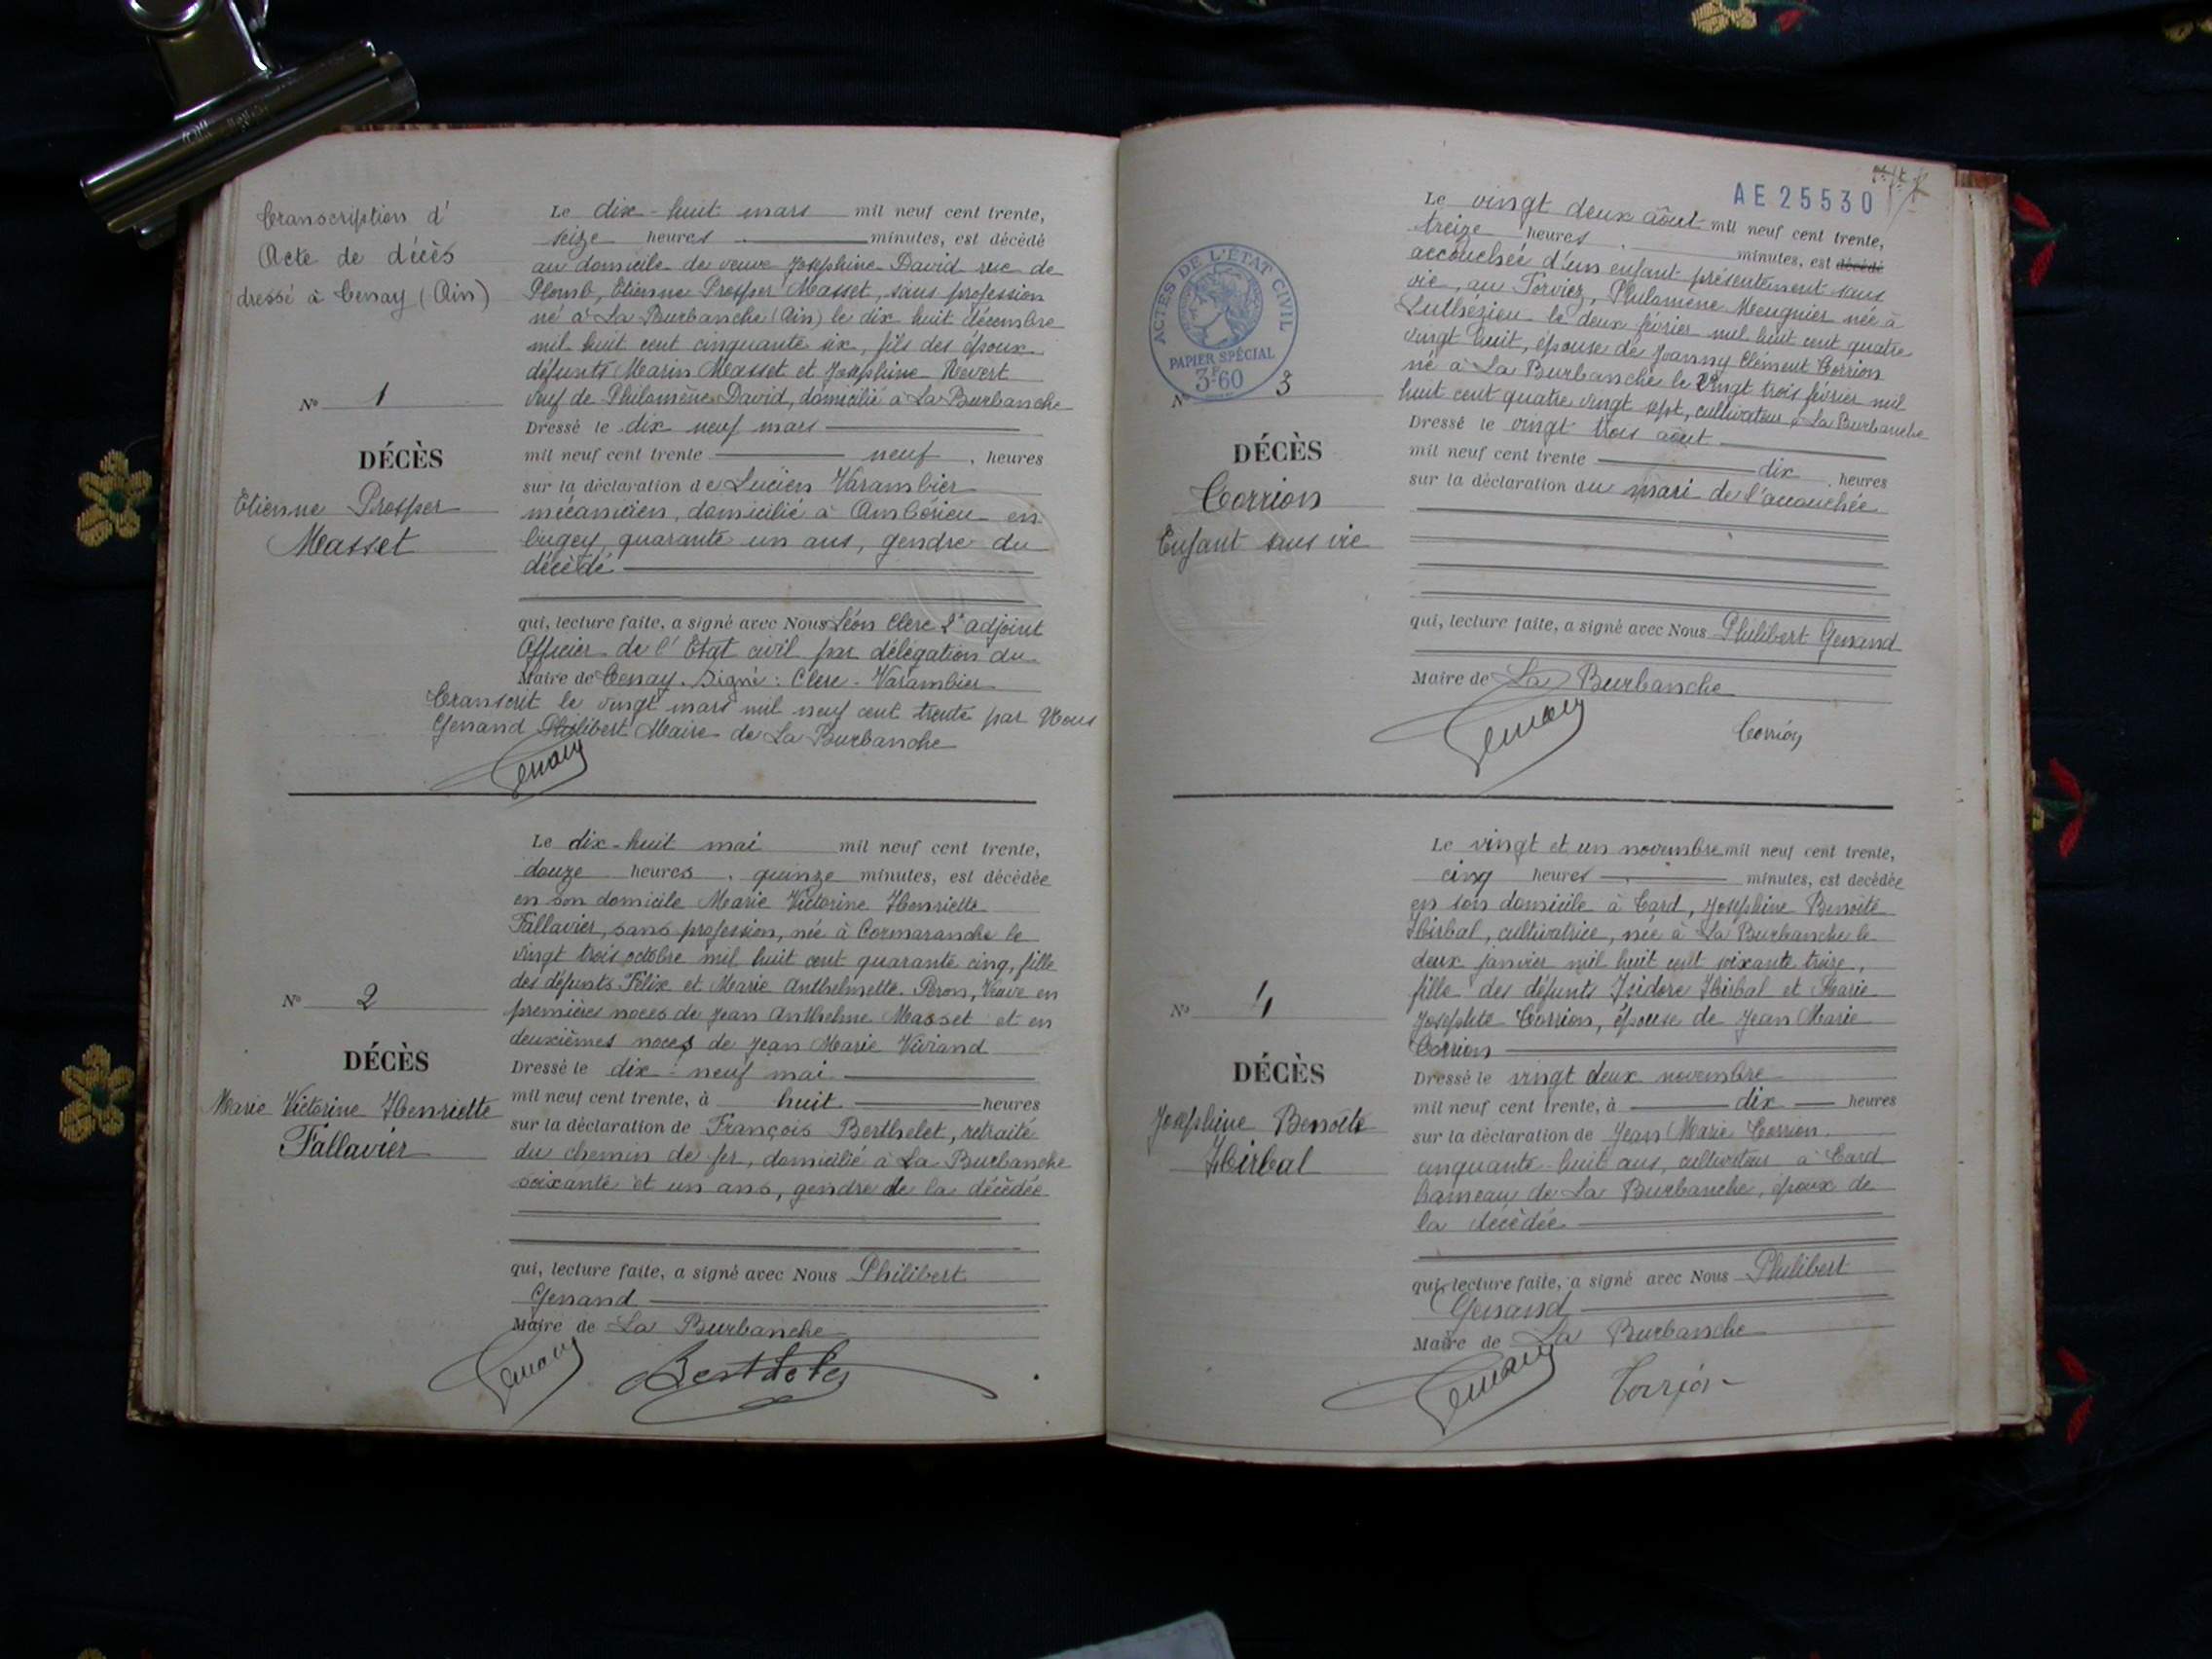 Transcription d'
Acte de décès
dressé à Tenay (Ain)
N° 1
DÉCÈS
Etienne Prosper
Masset
Le dix-huit mars mil neuf cent trente,
seize heures minutes, est décédé
au domicile de veuve Joséphine David rue de
Plomb, Etienne Prosper Masset, sans profession
né à La Burbanche (Ain) le dix huit décembre
mil huit cent cinquante six, fils des époux
défunts Marin Masset et Joséphine Revert
veuf de Philomène David, domicilié à La Burbanche
Dressé le dix neuf mars
mil neuf cent trente neuf, heures
sur la déclaration de Lucien Varambier
mécanicien, domicilié à Ambérieu en
bugey, quarante un ans, gendre du
décédé
qui, lecture faite, a signé avec Nous Léon Clerc 2e adjoint
Officier de l'Etat civil par délégation du
Maire de Tenay. Signé : Clerc - Varambier
Transcrit le vingt mars mil neuf cent trente par Nous
Genand Philibert Maire de La Burbanche
Genand
N° 2
DÉCÈS
Marie Victorine Henriette
Fallavier
Le dix-huit mai mil neuf cent trente,
douze heures, quinze minutes, est décédée
en son domicile Marie Victorine Henriette
Fallavier, sans profession, née à Cormaranche le
vingt trois octobre mil huit cent quarante cinq, fille
des défunts Félix et Marie Anthelmette Peron, Veuve en
premières noces de Jean Anthelme Masset et en
deuxièmes noces de Jean Marie Viviand
Dressé le dix-neuf mai
mil neuf cent trente, à huit heures
sur la déclaration de François Berthelet, retraité
du chemin de fer, domicilié à La Burbanche
soixante et un ans, gendre de la décédée
qui, lecture faite, a signé avec Nous Philibert
Genand
Maire de La Burbanche
Genand Berthelet
AE 25530
ACTES DE L'ÉTAT CIVIL
PAPIER SPÉCIAL
3F60
N° 3
DÉCÈS
Corrion
Enfant sans vie
Le vingt deux août mil neuf cent trente,
treize heures minutes, est décédé
accouchée d'un enfant présentement sans
vie, au Torviez, Philomène Meugnier née à
Luthézieu le deux février mil huit cent quatre
vingt huit, épouse de Joanny Clément Corrion
né à La Burbanche le vingt trois février mil
huit cent quatre vingt sept, cultivateur à La Burbanche
Dressé le vingt trois août
mil neuf cent trente dix, heures
sur la déclaration du mari de l'accouchée
qui, lecture faite, a signé avec Nous Philibert Genand
Maire de La Burbanche
Genand Corrion
N° 4
DÉCÈS
Joséphine Benoîte
Hirbal
Le vingt et un novembre mil neuf cent trente,
cinq heures minutes, est décédée
en son domicile à Tard, Joséphine Benoîte
Hirbal, cultivatrice, née à La Burbanche le
deux janvier mil huit cent soixante treize,
fille des défunts Isidore Hirbal et Marie
Josephte Corrion, épouse de Jean Marie
Corrion
Dressé le vingt deux novembre
mil neuf cent trente, à dix heures
sur la déclaration de Jean Marie Corrion
cinquante-huit ans, cultivateur à Tard
hameau de La Burbanche, époux de
la décédée
qui, lecture faite, a signé avec Nous Philibert
Genand
Maire de La Burbanche
Genand Corrion